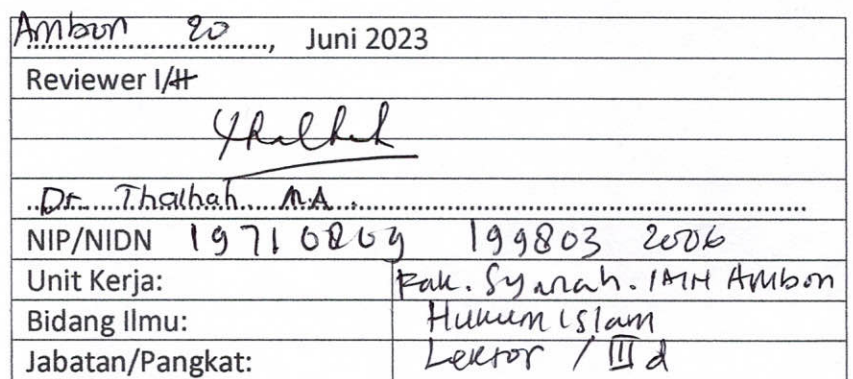 Ambon 20 ......, Juni 2023
Reviewer I/II
..Dr....Thalhah....M.A......
NIP/NIDN 199803 2006
Unit Kerja: Fak. Syariah. IAIN Ambon
Bidang Ilmu: Hukum Islam
Jabatan/Pangkat: Lektor / III d